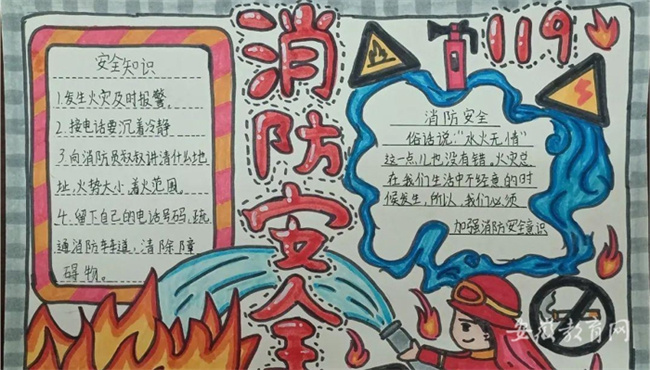 消防安全
119
安全知识
1.发生火灾及时报警。
2.接电话要沉着冷静
3.向消防员叔叔讲清什么地
址,火势大小,着火范围。
4.留下自己的电话号码,疏
通消防车车道,清除障
碍物。
消防安全
俗话说:“水火无情”
这一点儿也没有错。火灾总
在我们生活中不经意的时
候发生,所以,我们必须
加强消防安全意识
安徽教育网